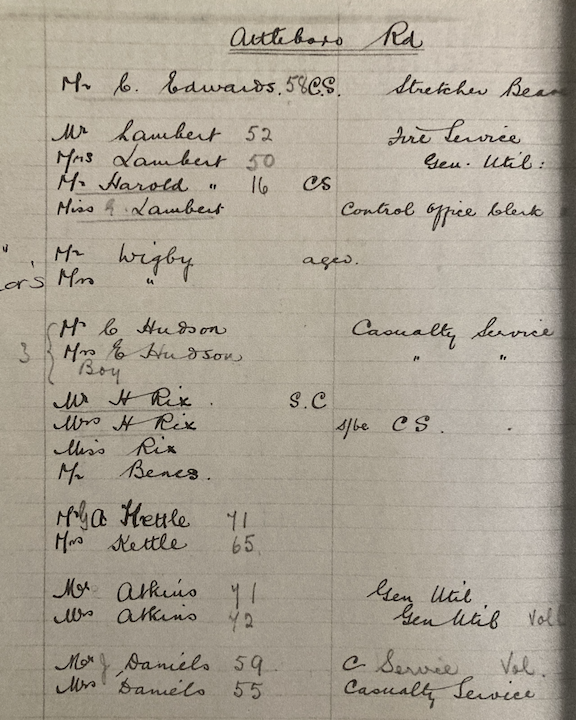 Attleboro Rd
Mr C. Edwards. 58 C.S. Stretcher Beare
Mr Lambert 52 Fire Service
Mrs Lambert 50 Gen. Util:
Mr Harold " 16 CS
Miss Lambert Control Office Clerk
" Mr Wigby aged.
or's Mrs "
Mr C Hudson Casualty Service
3 Mrs E Hudson " "
Boy
Mr H Rix . S.C
Mrs H Rix s/be C S .
Miss Rix
Mr Benes.
Mr G A Kettle 71
Mrs Kettle 65.
Mr Atkins 41 Gen Util
Mrs Atkins 42 Gen Util Vol
Mr J Daniels 59 C Service Vol.
Mrs Daniels 55 Casualty Service